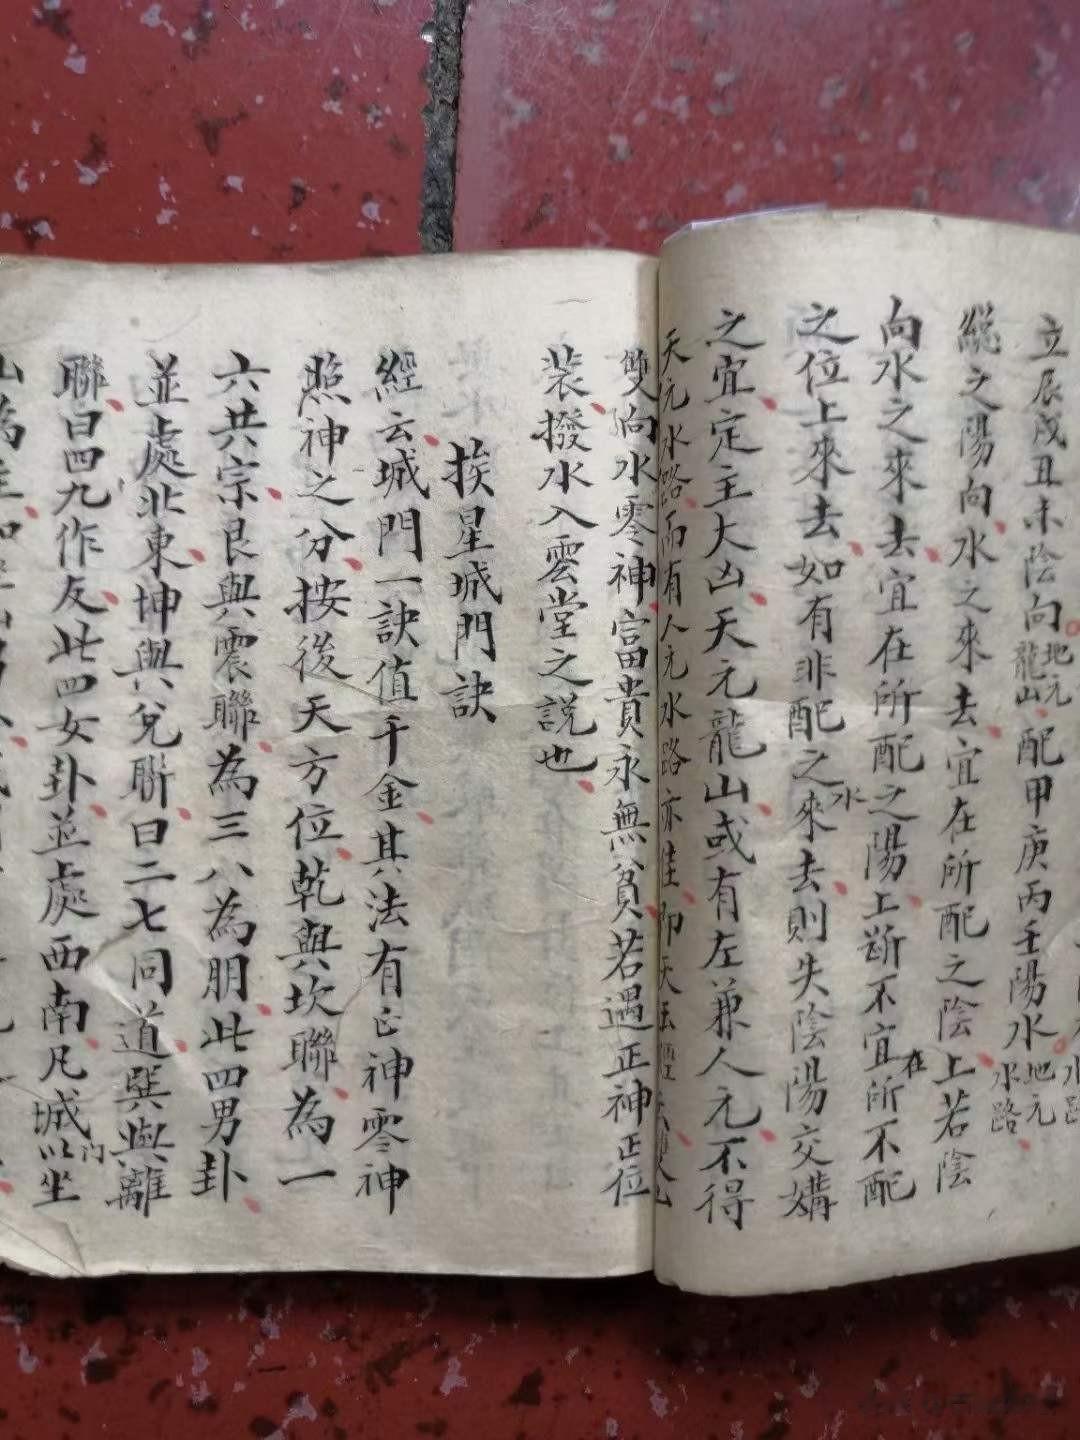 立辰戌丑未陰向地元龍山配甲庚丙壬陽水地元水路
縂之陽向水之來去宜在所配之陰上若陰
向水之來去宜在所配之陽上斷不宜在所不配
之位上來去如有非配之水來去則失陰陽交媾
之宜定主大凶天元龍山或有左兼人元不得
天元水路而有人元水路亦佳即天
雙向水零神富貴永無貧若遇正神正位
裝撥水入雲堂之説也
挨星城門訣
經云城門一訣值千金其法有正神零神
照神之分按後天方位乾與坎聯為一
六共宗艮與震聯為三八為朋此四男卦
並處北東坤與兌聨曰二七同道巽與離
聯曰四九作友此四女卦並處西南凡城门以坐
山為主如